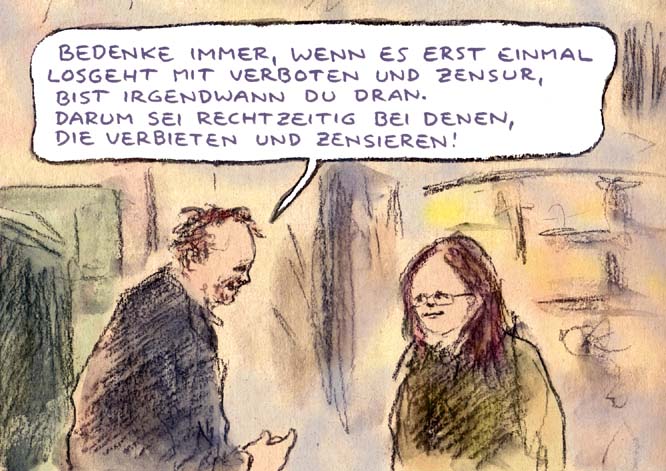 BEDENKE IMMER, WENN ES ERST EINMAL
LOSGEHT MIT VERBOTEN UND ZENSUR,
BIST IRGENDWANN DU DRAN.
DARUM SEI RECHTZEITIG BEI DENEN,
DIE VERBIETEN UND ZENSIEREN!